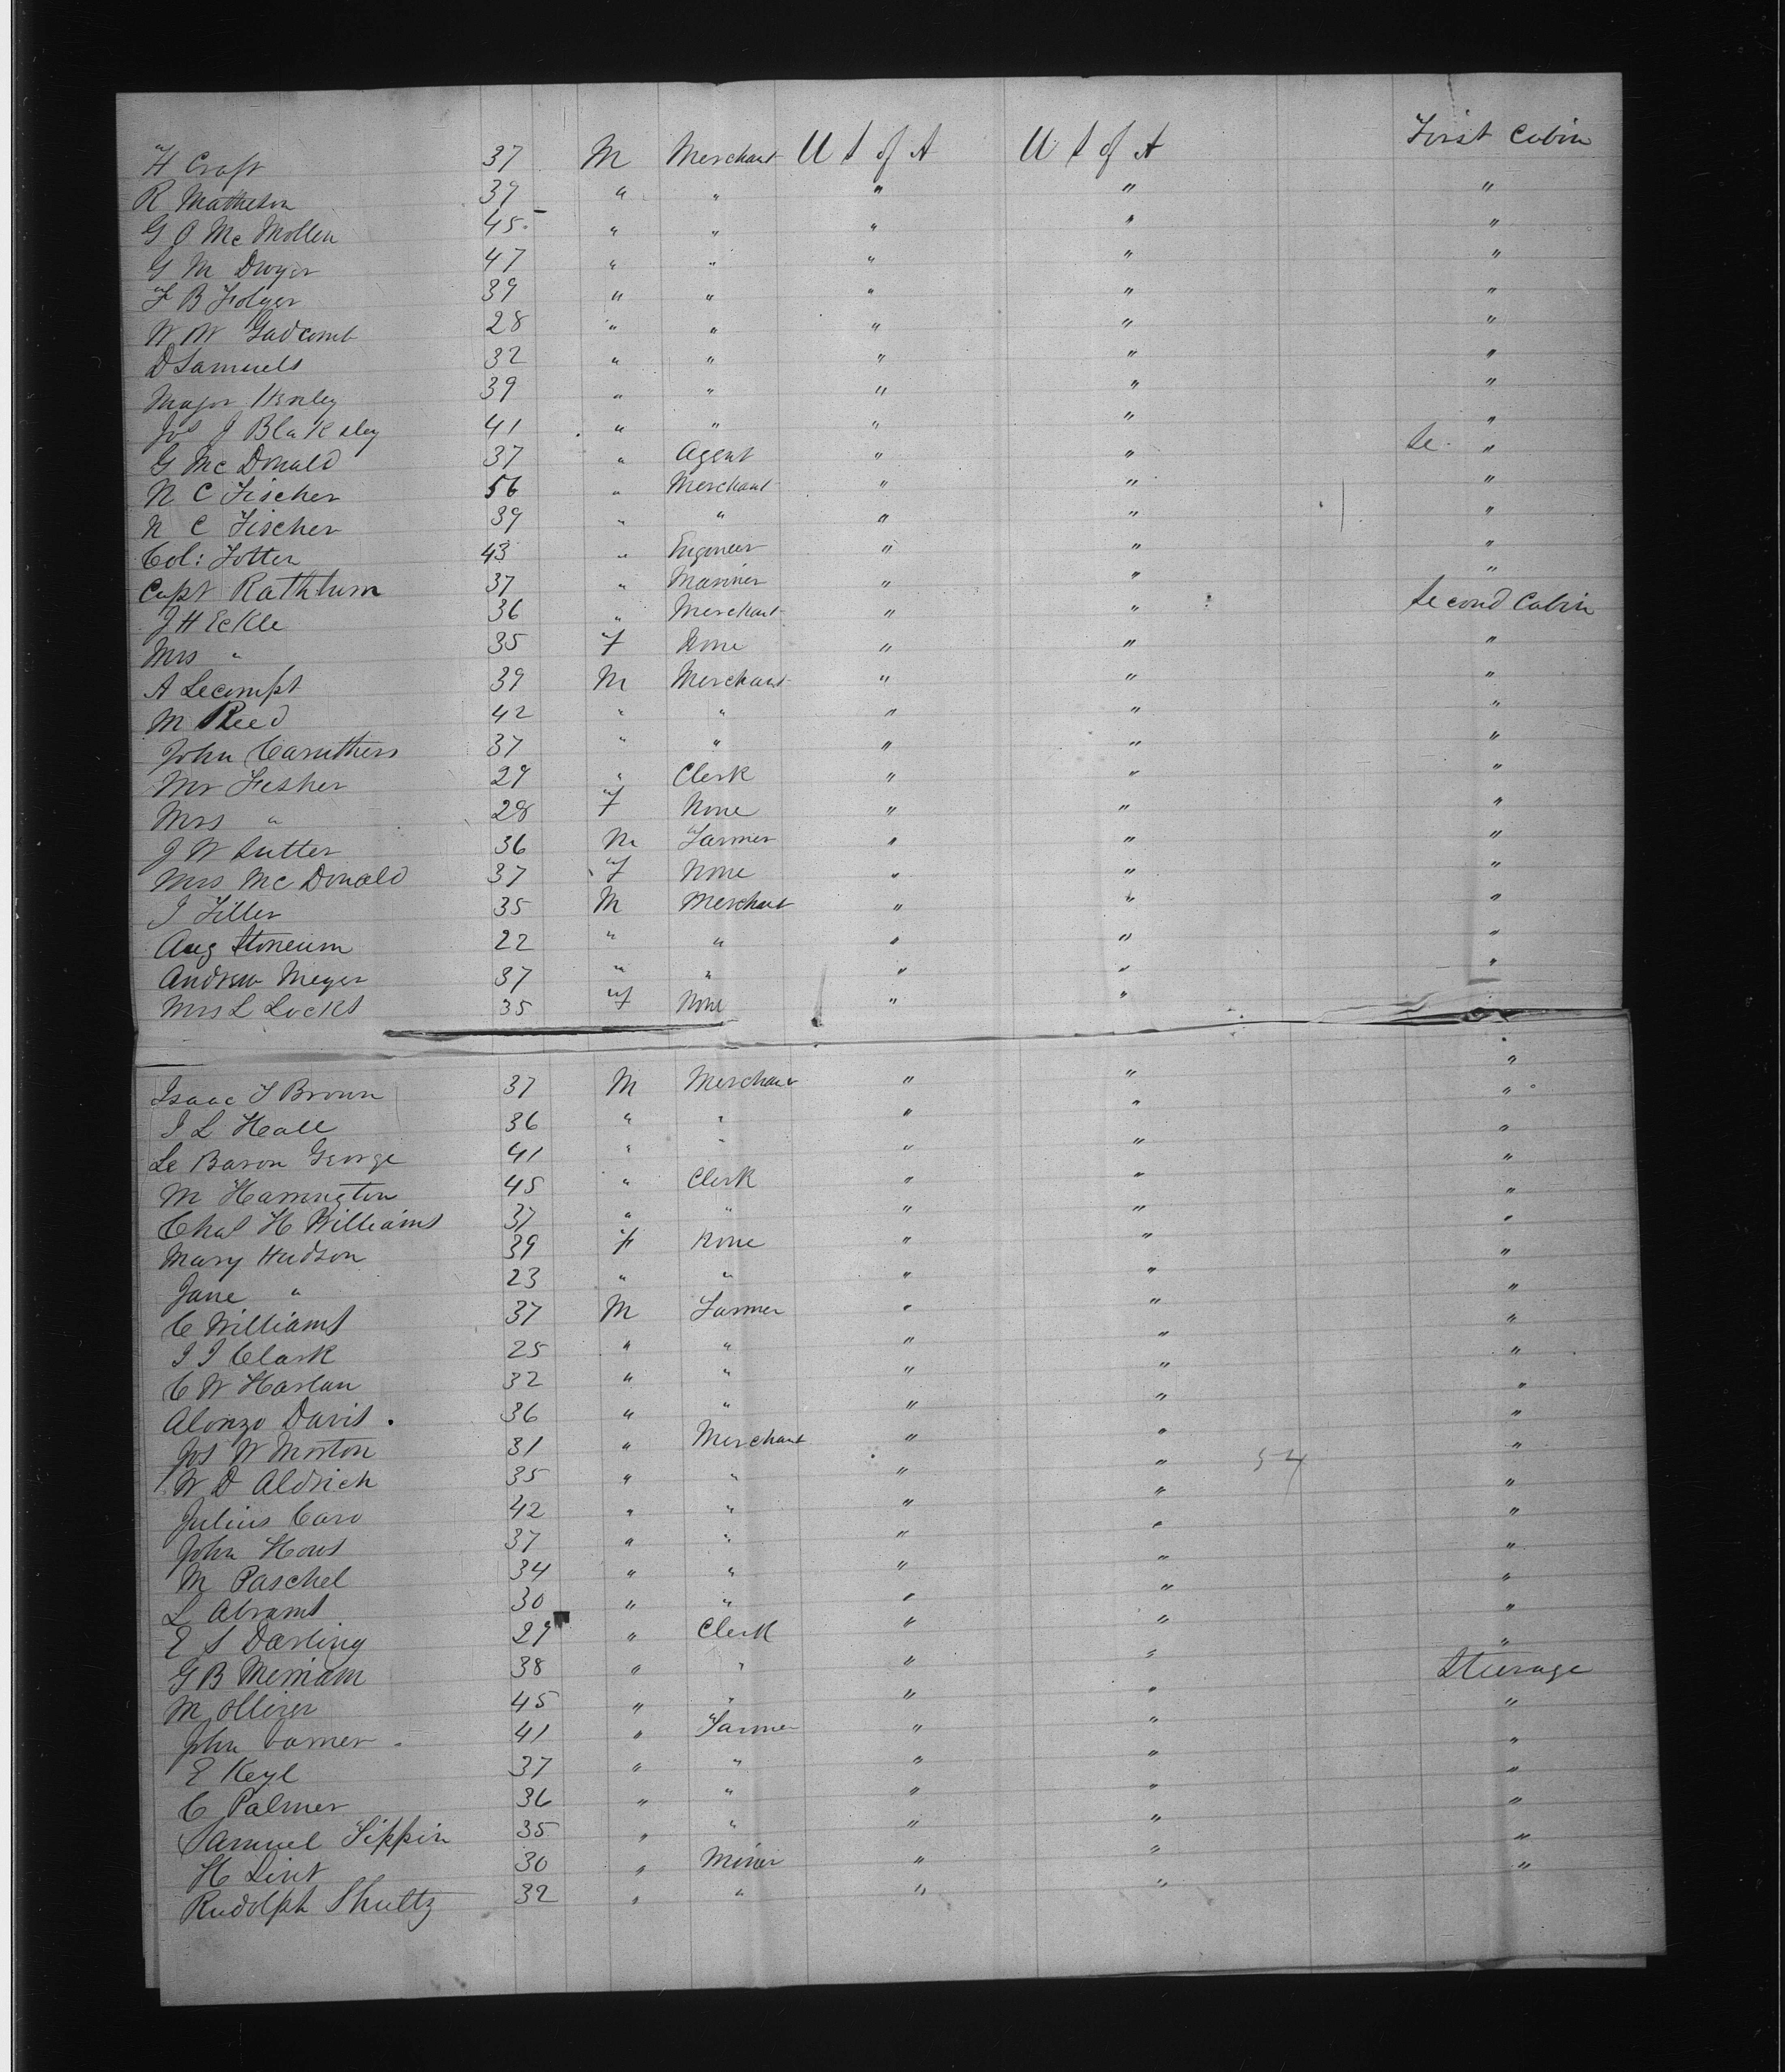 H Craft 37 M Merchant U S of A U S of A First Cabin
R Matheson 39 " " " " "
G O McMollen 45 " " " " "
G M Dwyer 47 " " " " "
F B Folger 39 " " " " "
W W Gadcomb 28 " " " " "
D Samuels 32 " " " " "
Major Henley 39 " " " " "
Jos J Blaksley 41 " " " " "
G McDonald 37 " Agent " " Se "
N C Fischer 56 " Merchant " " "
N C Fischer 39 " " " " "
Col: Totten 43 " Engineer " " "
Capt Rathbum 37 " Mariner " " "
J H Eckle 36 " Merchant " " Second Cabin
Mrs " 35 F None " " "
A Lecompt 39 M Merchant " " "
M Reed 42 " " " " "
John Caruthers 37 " " " " "
Mr Fisher 29 " Clerk " " "
Mrs " 28 F None " " "
J W Sutter 36 M Farmer " " "
Mrs McDonald 37 F None " " "
J Filler 35 M Merchant " " "
Aug Stoneum 22 " " " " "
Andrew Meyer 37 " " " " "
Mrs L Locks 35 F None " " "
Isaac T Brown 37 M Merchant " " "
I L Hall 36 " " " " "
Le Baron George 41 " " " " "
M Harrington 45 " Clerk " " "
Chas H Williams 37 " " " " "
Mary Hudson 39 F None " " "
Jane " 23 " " " " "
C Williams 37 M Farmer " " "
I I Clark 25 " " " " "
C W Harlan 32 " " " " "
Alonzo Davis 36 " " " " "
Jos W Morton 31 " Merchant " " "
W D Aldrich 35 " " " " 54 "
Julius Caro 42 " " " " "
John Hows 37 " " " " "
M Paschel 34 " " " " "
L Abrams 30 " " " " "
E S Darling 29 " Clerk " " "
G B Merriam 38 " " " " Steerage
M Olliver 45 " " " " "
John 41 " Farmer " " "
E Keyl 37 " " " " "
C Palmer 36 " " " " "
Samuel Tippin 35 " " " " "
H Lint 30 " Miner " " "
Rudolph Shultz 32 " " " "